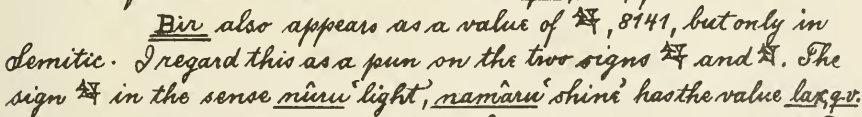 Bir also appears as a value of , 8141, but only in
Semitic. I regard this as a pun on the two signs and . The
sign in the sense nûru 'light', namâru 'shine' has the value lax, q.v.